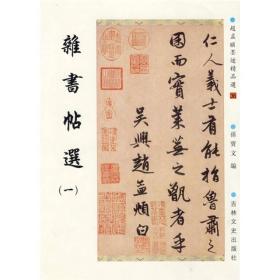 趙孟頫墨迹精品選
孫寶文 編
吉林文史出版社
仁人義士有能指魯肅之
囷而實萊蕪之甑者乎
吳興趙孟頫白
雜書帖選(一)